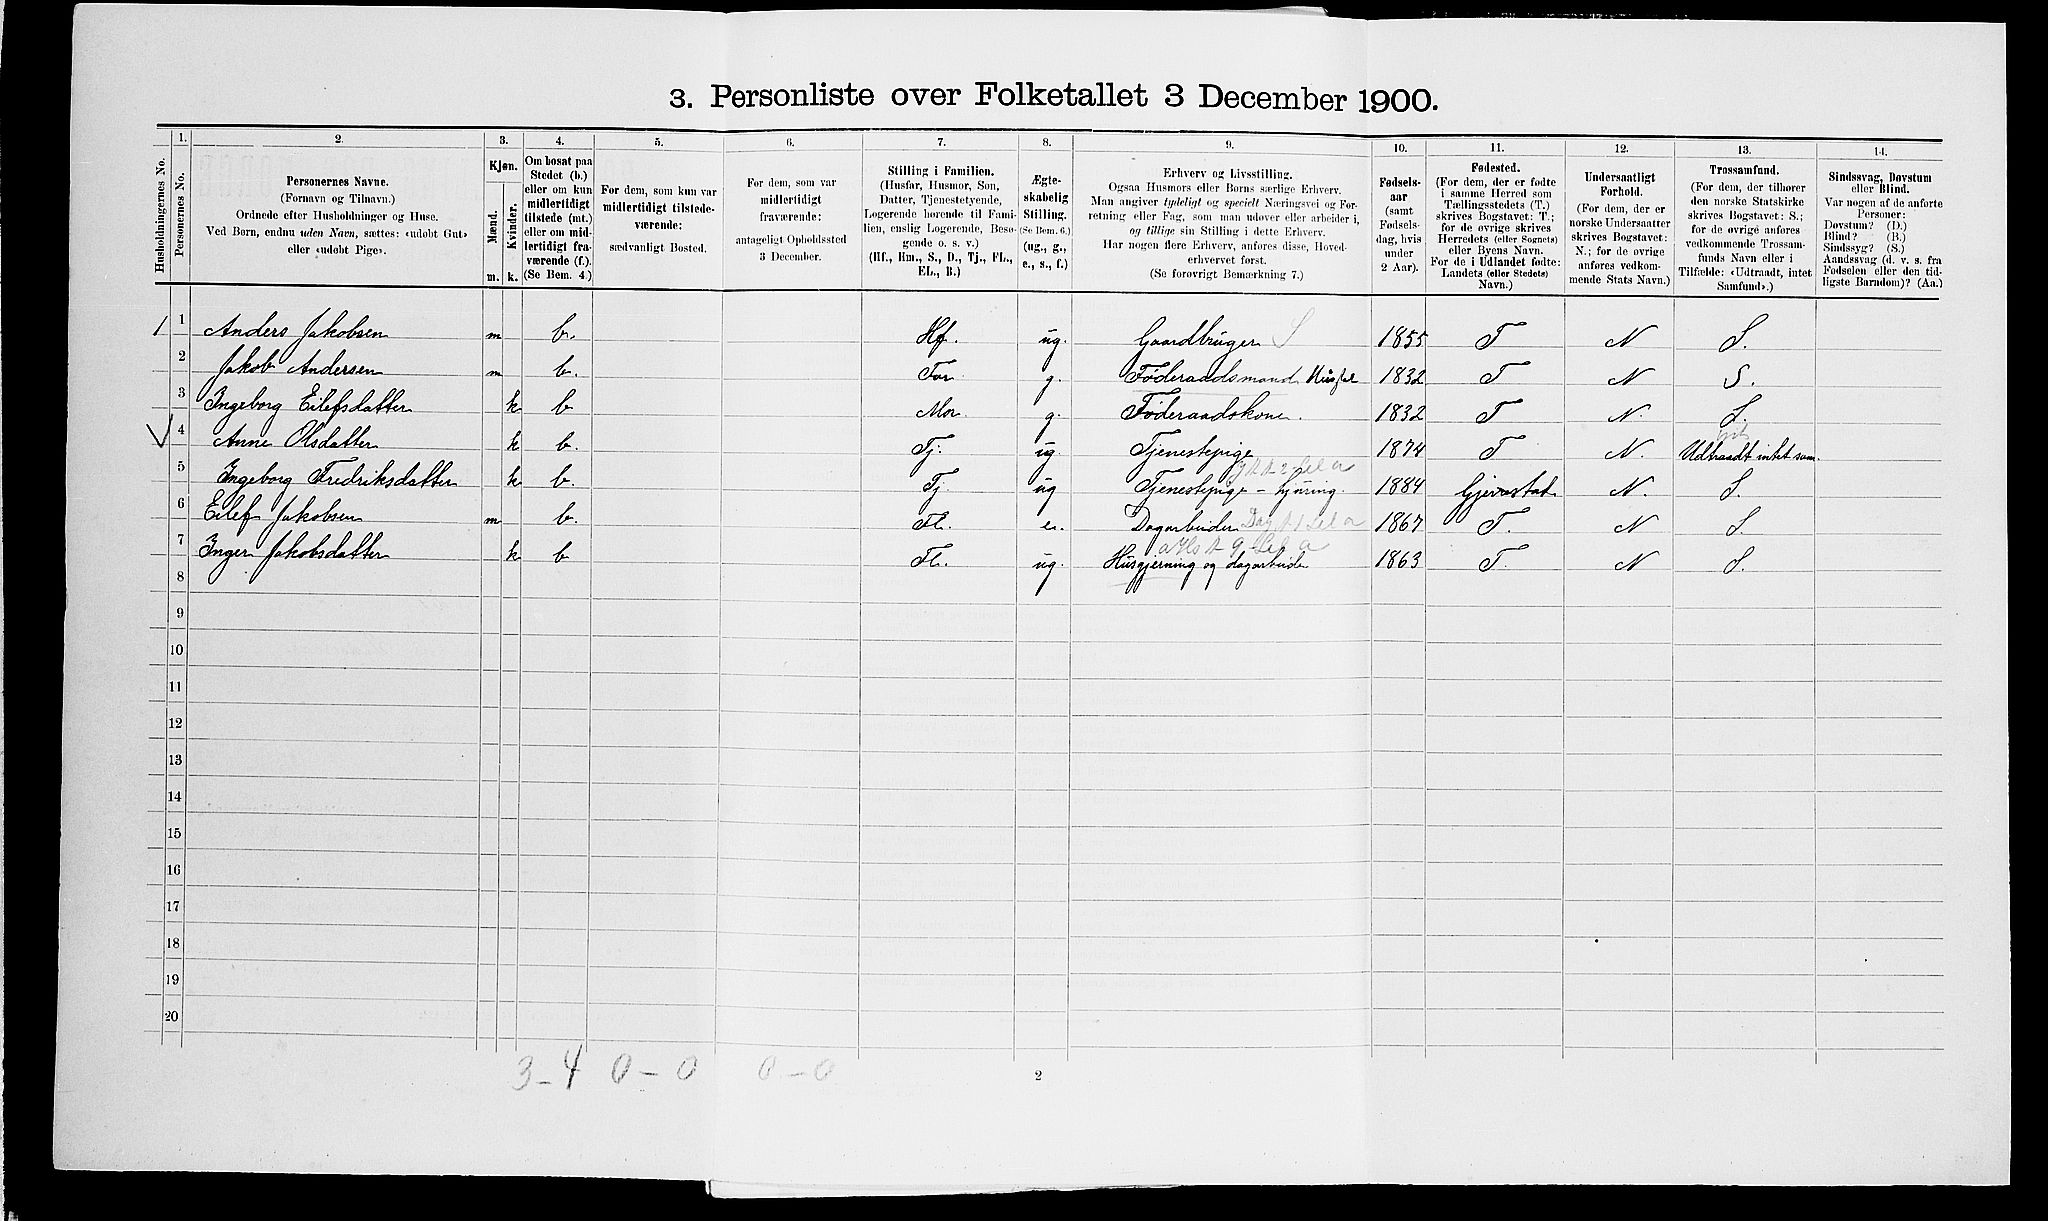 3. Personliste over Folketallet 3 December 1900.
1. 2. 3. 4. 5. 6. 7. 8. 9. 10. 11. 12. 13. 14.
Husholdningernes No.
Personernes No.
Personernes Navne.
(Fornavn og Tilnavn.)
Ordnede efter Husholdninger og Huse.
Ved Børn, endnu uden Navn, sættes: «udøbt Gut»
eller «udøbt Pige».
Kjøn.
Mænd.
Kvinder.
m. k.
Om bosat paa
Stedet (b.)
eller om kun
midlertidigt
tilstede (mt.)
eller om mid-
lertidigt fra-
værende (f.).
(Se Bem. 4.)
For dem, som kun var
midlertidigt tilstede-
værende:
sædvanligt Bosted.
For dem, som var
midlertidigt
fraværende:
antageligt Opholdssted
3 December.
Stilling i Familien.
(Husfar, Husmor, Søn,
Datter, Tjenestetyende,
Logerende hørende til Fami-
lien, enslig Logerende, Besø-
gende o. s. v.)
(Hf., Hm., S., D., Tj., FL.,
EL., B.)
Ægte-
skabelig
Stilling.
(Se Bem. 6.)
(ug., g.,
e., s., f.)
Erhverv og Livsstilling.
Ogsaa Husmors eller Børns særlige Erhverv.
Man angiver tydeligt og specielt Næringsvei og For-
retning eller Fag, som man udøver eller arbeider i,
og tillige sin Stilling i dette Erhverv.
Har nogen flere Erhverv, anføres disse, Hoved-
erhvervet først.
(Se forøvrigt Bemærkning 7.)
Fødsels-
aar
(samt
Fødsels-
dag, hvis
under
2 Aar).
Fødested.
(For dem, der er fødte
i samme Herred som
Tællingsstedets (T.)
skrives Bogstavet: T.;
for de øvrige skrives
Herredets (eller Sognets)
eller Byens Navn.
For de i Udlandet fødte:
Landets (eller Stedets)
Navn.)
Undersaatligt
Forhold.
(For dem, der er
norske Undersaatter
skrives Bogstavet:
N.; for de øvrige
anføres vedkom-
mende Stats Navn.)
Trossamfund.
(For dem, der tilhører
den norske Statskirke
skrives Bogstavet: S.;
for de øvrige anføres
vedkommende Trossam-
funds Navn eller i
Tilfælde: «Udtraadt, intet
Samfund».)
Sindssvag, Døvstum
eller Blind.
Var nogen af de anførte
Personer:
Døvstum? (D.)
Blind? (B.)
Sindssyg? (S.)
Aandssvag (d. v. s. fra
Fødselen eller den tid-
ligste Barndom)? (Aa.)
1 1 Anders Jakobsen m b. Hf. ug. Gaardbruger S 1855 T N S.
2 Jakob Andersen m b. Far g. Føderaadsmand 1832 T N S.
3 Ingeborg Eilefsdatter k b Mor g. Føderaadskone. 1832 T N. S.
4 Anne Olsdatter k b. Tj. ug. Tjenestepige 1874 T N. Udtraadt intet sam.
5 Ingeborg Fredriksdatter k b. Tj. ug Tjenestepige - 1884 Gjerestad N. S.
6 Eilef Jakobsen m b. Fl. e. Dagarbeider 1867 T. N S.
7 Inger Jakobsdatter k b Fl. ug. Husgjerning og dagarbeide 1863 T. N S.
8
9
10
11
12
13
14
15
16
17
18
19
20
3-4 0-0 0-0
2